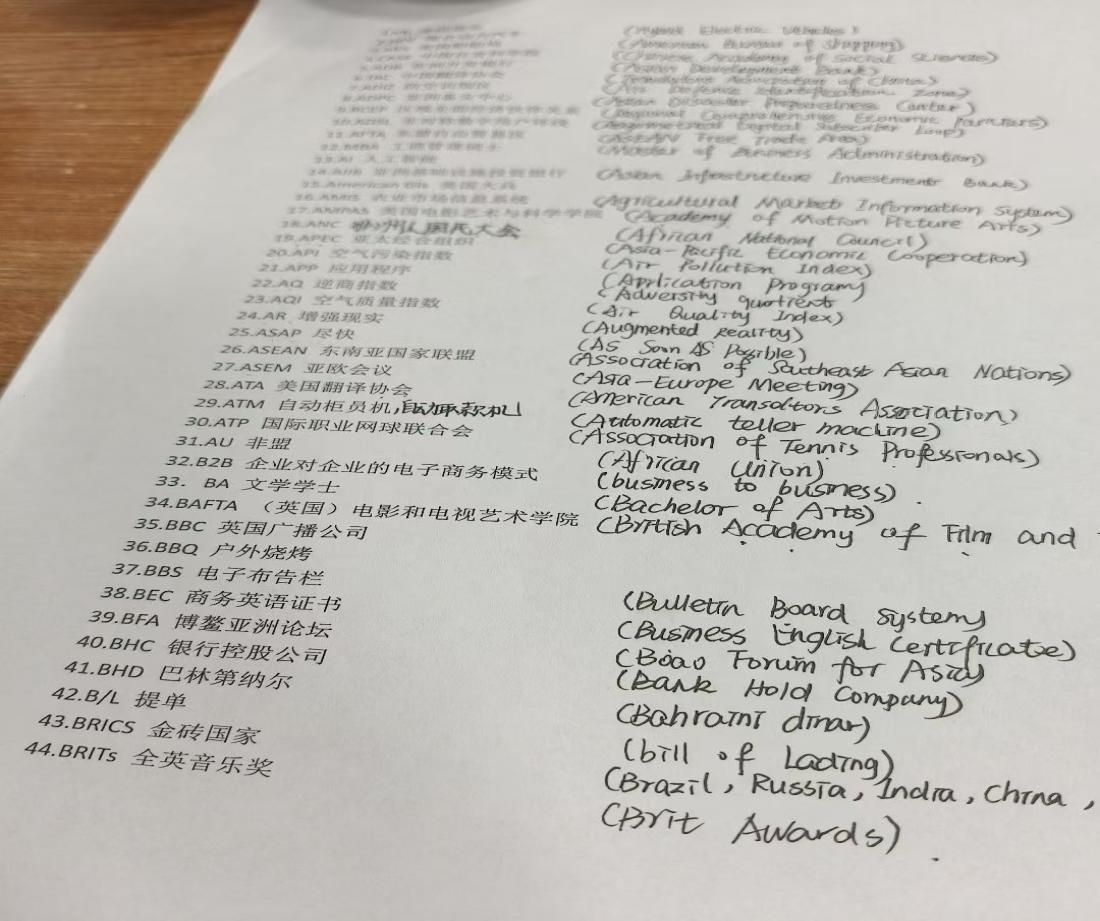 (Chinese Academy of Social Sciences)
(Asian Development Bank)
(Air Defense Identification Zone)
(Asian Disaster Preparedness Center)
(Regional Comprehensive Economic
(ASEAN Free Trade Area)
12.MBA 工商管理硕士 (Master of Business Administration)
13.AI 人工智能
14.AIIB 亚洲基础设施投资银行 (Asian Infrastructure Investment Bank)
15.American GIs 美国大兵
16.AMIS 农业市场信息系统 (Agricultural Market Information System)
17.AMPAS 美国电影艺术与科学学院 (Academy of Motion Picture Arts)
18.ANC 非洲人国民大会 (African National Council)
19.APEC 亚太经合组织 (Asia-Pacific Economic Cooperation)
20.API 空气污染指数 (Air Pollution Index)
21.APP 应用程序 (Application Program)
22.AQ 逆商指数 (Adversity quotient
23.AQI 空气质量指数 (Air Quality Index)
24.AR 增强现实 (Augmented Reality)
25.ASAP 尽快 (As Soon As Possible)
26.ASEAN 东南亚国家联盟 (Association of Southeast Asian Nations)
27.ASEM 亚欧会议 (Asia-Europe Meeting)
28.ATA 美国翻译协会 (American Transaltors Association)
29.ATM 自动柜员机,自动取款机 (Automatic teller machine)
30.ATP 国际职业网球联合会 (Association of Tennis Professionals)
31.AU 非盟 (African Union)
32.B2B 企业对企业的电子商务模式 (business to business)
33. BA 文学学士 (Bachelor of Arts)
34.BAFTA （英国）电影和电视艺术学院 (British Academy of Film and
35.BBC 英国广播公司
36.BBQ 户外烧烤
37.BBS 电子布告栏 (Bulletin Board System)
38.BEC 商务英语证书 (Business English Certificate)
39.BFA 博鳌亚洲论坛 (Boao Forum for Asia)
40.BHC 银行控股公司 (Bank Hold Company)
41.BHD 巴林第纳尔 (Bahraini dinar)
42.B/L 提单 (bill of Lading)
43.BRICS 金砖国家 (Brazil, Russia, India, China,
44.BRITs 全英音乐奖 (Brit Awards)